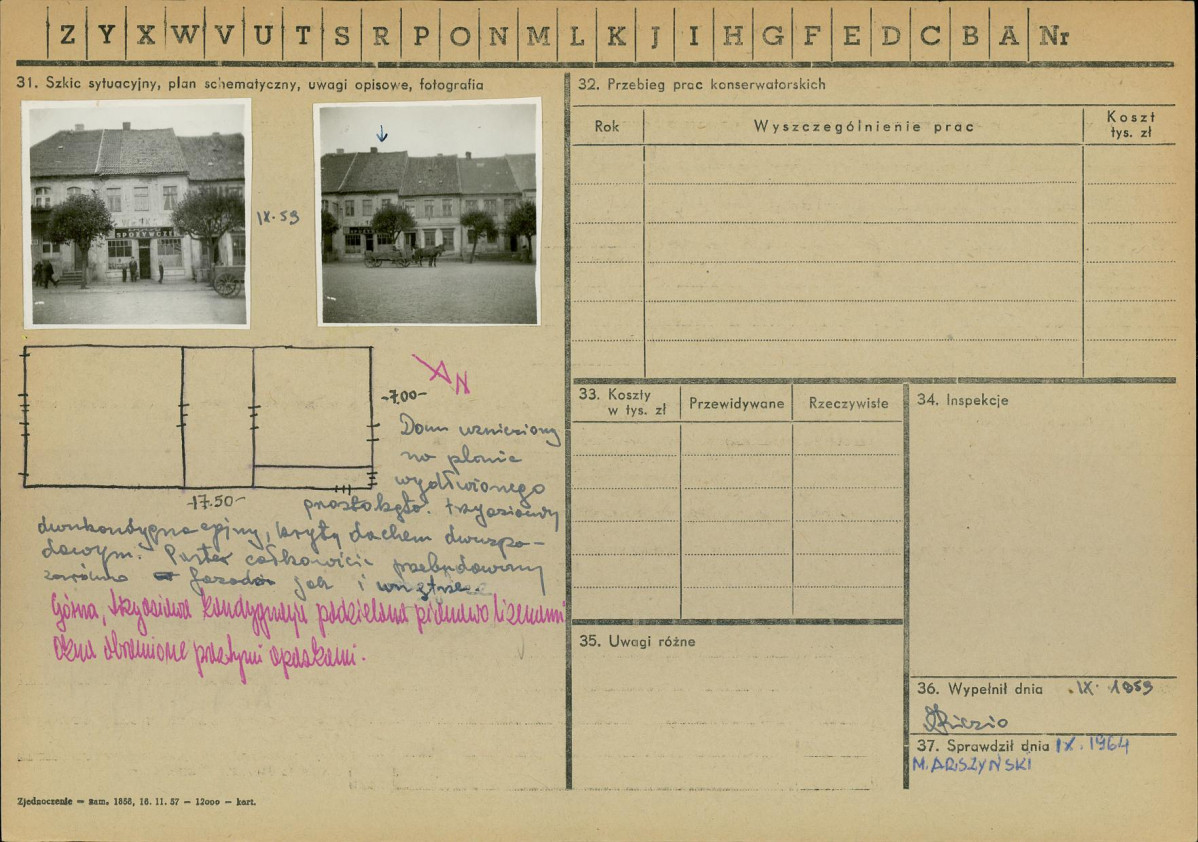 Z Y X W V U T S R P O N M L K J I H G F E D C B A Nr
31. Szkic sytuacyjny, plan schematyczny, uwagi opisowe, fotografia
SPOŻYWCZE
IX.59
N
-7.00-
-17.50-
Dom wzniesiony
na planie
wydłużonego
prostokąta. trzyosiowy
dwukondygnacyjny, kryty dachem dwuspa-
dowym. Parter całkowicie przebudowany
zarówno fasada jak i wnętrze.
Górna, trzyosiowa kondygnacja podzielona pionowo lizenami
Okna obramione prostymi opaskami.
32. Przebieg prac konserwatorskich
Rok
Wyszczególnienie prac
Koszt
tys. zł
33. Koszty
w tys. zł
Przewidywane
Rzeczywiste
34. Inspekcje
35. Uwagi różne
36. Wypełnił dnia .IX. 1959
37. Sprawdził dnia IX.1964
M. ARSZYŃSKI
Zjednoczenie — zam. 1858, 16. 11. 57 — 12000 — kart.